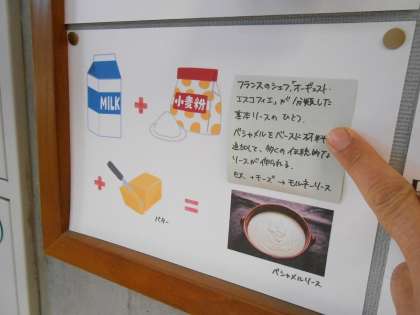 MILK
小麦粉
フランスのシェフ「オーギュスト・
エスコフィエ」が分類した
基本ソースのひとつ。
ベシャメルをベースに材料
追加して、多くの伝統的な
ソースが作られる。
ex. +チーズ→モルネーソース
バター
ベシャメルソース